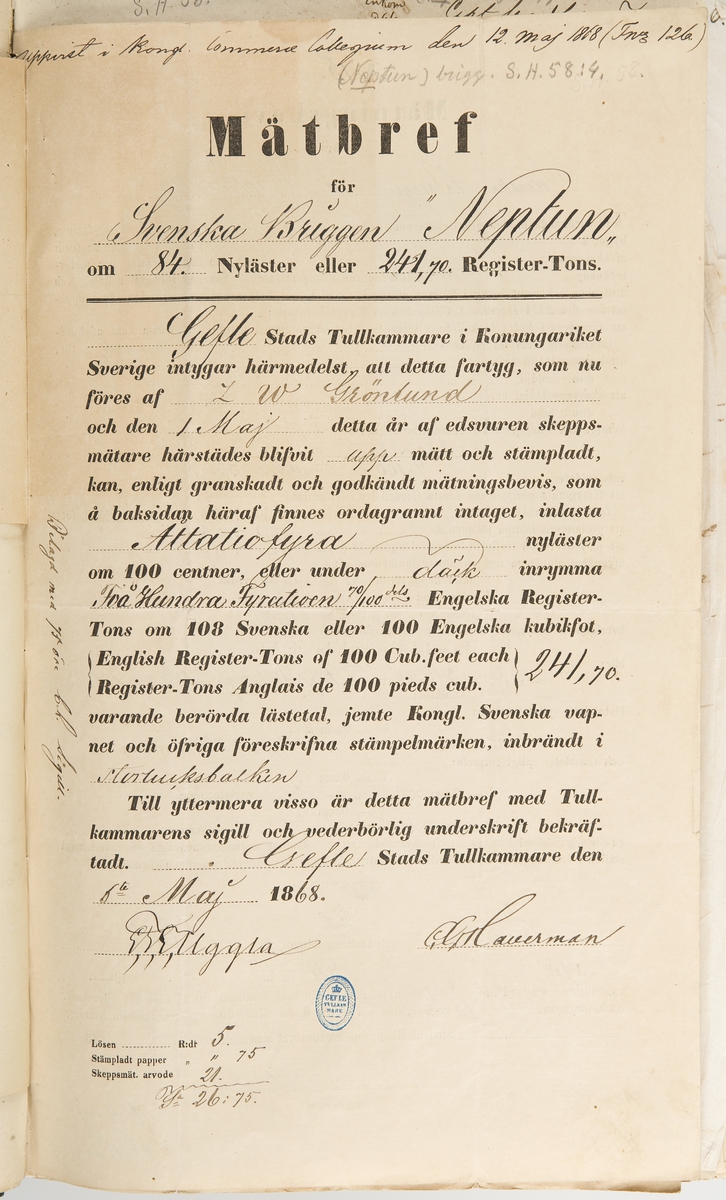 S. H. 58.
uppvist i Kongl. Commerce Collegium den 12. Maj 1868 (Tnr 126.)
(Neptun) brigg. S. H. 58:4.
Mätbref
för
Svenska Briggen "Neptun„
om 84. Nyläster eller 241,70. Register-Tons.
Gefle Stads Tullkammare i Konungariket
Sverige intygar härmedelst, att detta fartyg, som nu
föres af L W Grönlund
och den 1 Maj detta år af edsvuren skepps-
mätare härstädes blifvit upp mätt och stämpladt,
kan, enligt granskadt och godkändt mätningsbevis, som
å baksidan häraf finnes ordagrannt intaget, inlasta
Åttatiofyra nyläster
om 100 centner, eller under däck inrymma
Två Hundra Fyratioen 70/100 dels Engelska Register-
Tons om 108 Svenska eller 100 Engelska kubikfot,
(English Register-Tons of 100 Cub. feet each
Register-Tons Anglais de 100 pieds cub.) 241,70.
varande berörda lästetal, jemte Kongl. Svenska vap-
net och öfriga föreskrifna stämpelmärken, inbrändt i
Storlucksbalken
Till yttermera visso är detta mätbref med Tull-
kammarens sigill och vederbörlig underskrift bekräf-
tadt. Gefle Stads Tullkammare den
5te Maj 1868.
Uggla Haverman
GEFLE
TULLKAM
MARE
Lösen R:dr 5.
Stämpladt papper „ „ 75
Skeppsmät. arvode 21.
Sa 26:75.
Bilagd med 75 öre